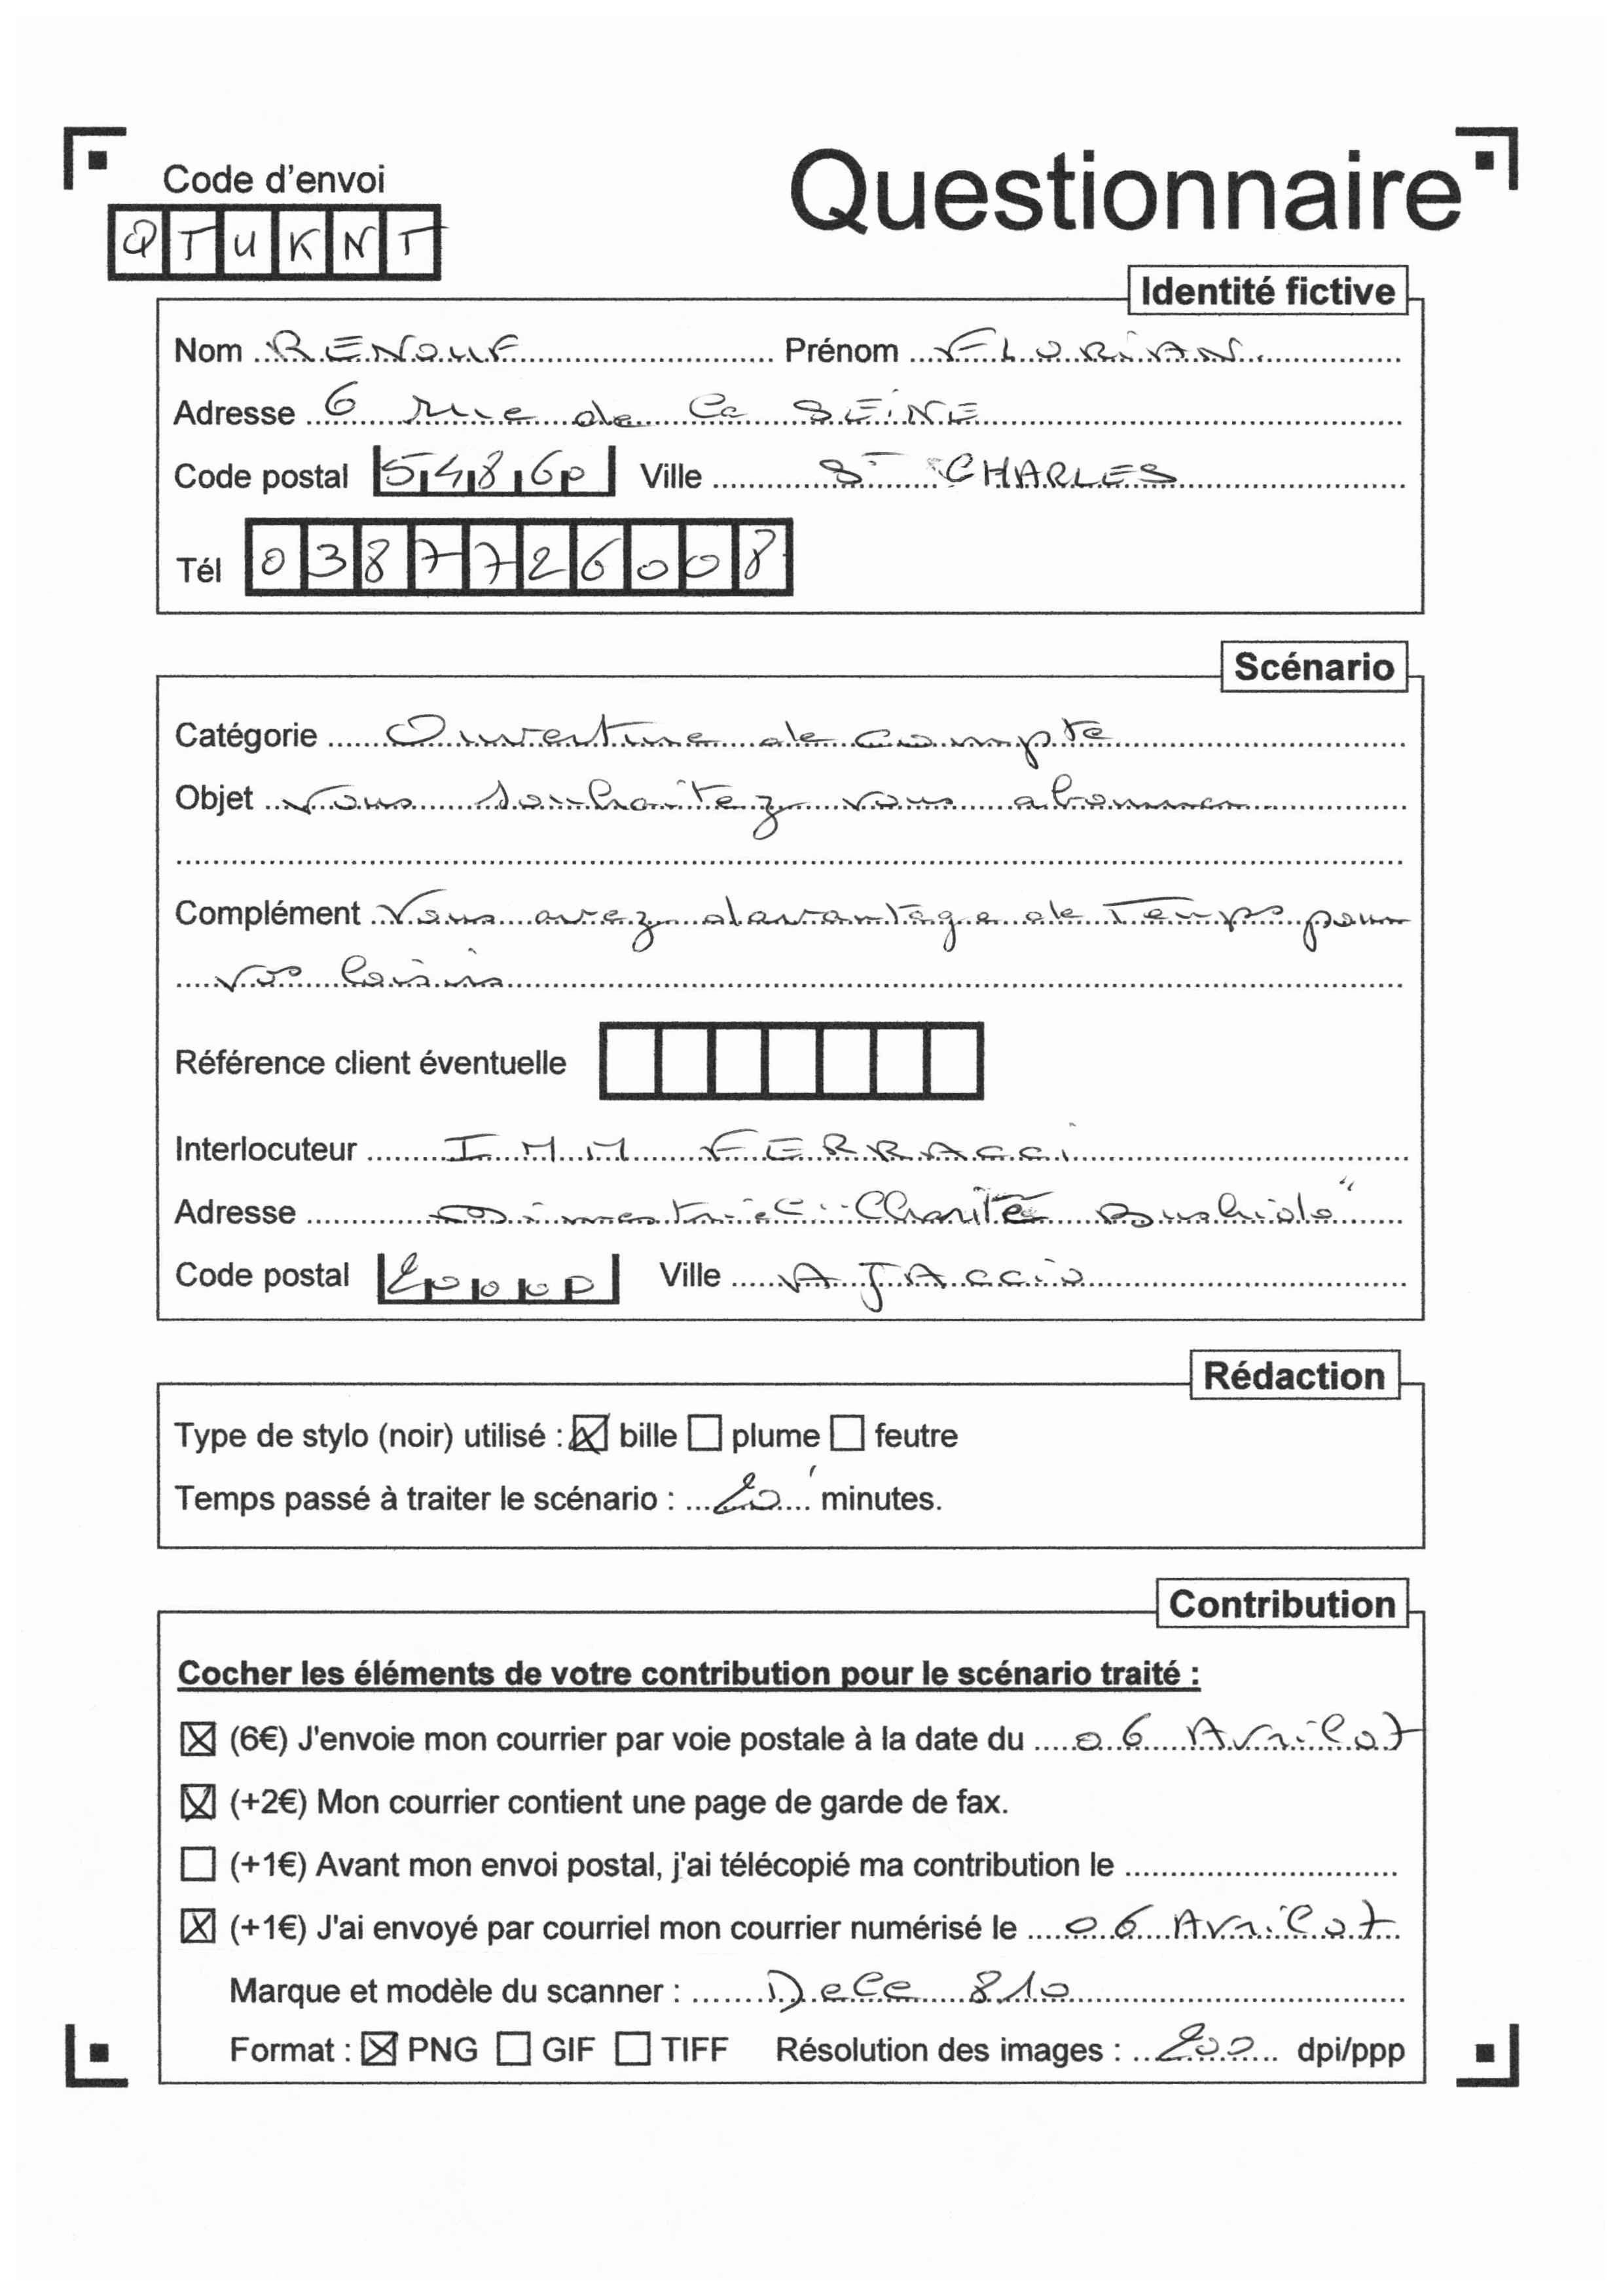 Code d'envoi
Questionnaire
QTUKNT
Identité fictive
Nom RENOUF Prénom FLORIAN
Adresse 6 rue de la SEINE
Code postal 54860 Ville St CHARLES
Tél 0387726008
Scénario
Catégorie Ouverture de compte
Objet Vous souhaitez vous abonner
Complément Vous avez davantage de temps pour
vos loisirs
Référence client éventuelle
Interlocuteur IMM FERRACCI
Adresse "Charité
Code postal 20000 Ville AJAccio
Rédaction
Type de stylo (noir) utilisé : bille plume feutre
Temps passé à traiter le scénario : 20' minutes.
Contribution
Cocher les éléments de votre contribution pour le scénario traité :
(6€) J'envoie mon courrier par voie postale à la date du 06 Avril 07
(+2€) Mon courrier contient une page de garde de fax.
(+1€) Avant mon envoi postal, j'ai télécopié ma contribution le
(+1€) J'ai envoyé par courriel mon courrier numérisé le 06 Avril 07
Marque et modèle du scanner : Dell 810
Format : PNG GIF TIFF Résolution des images : 200 dpi/ppp